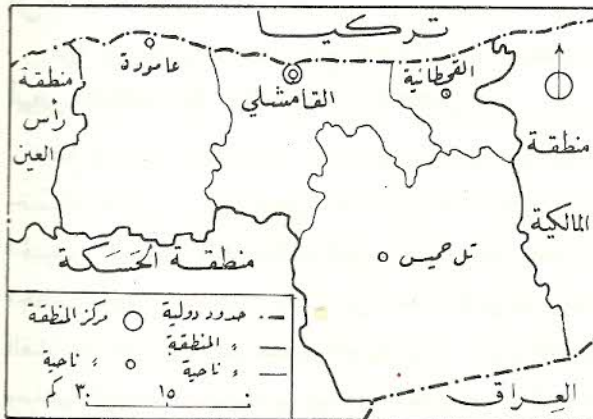 تركيا
عامودة
القحطانية
القامشلي
منطقة
رأس
العين
منطقة
المالكية
تل حميس
منطقة الحَسَكة
العِراق
حدود دولية
مركز المنطقة
، المنطقة
، ناحية
، ناحية
٠ ١٥ ٣٠ كم